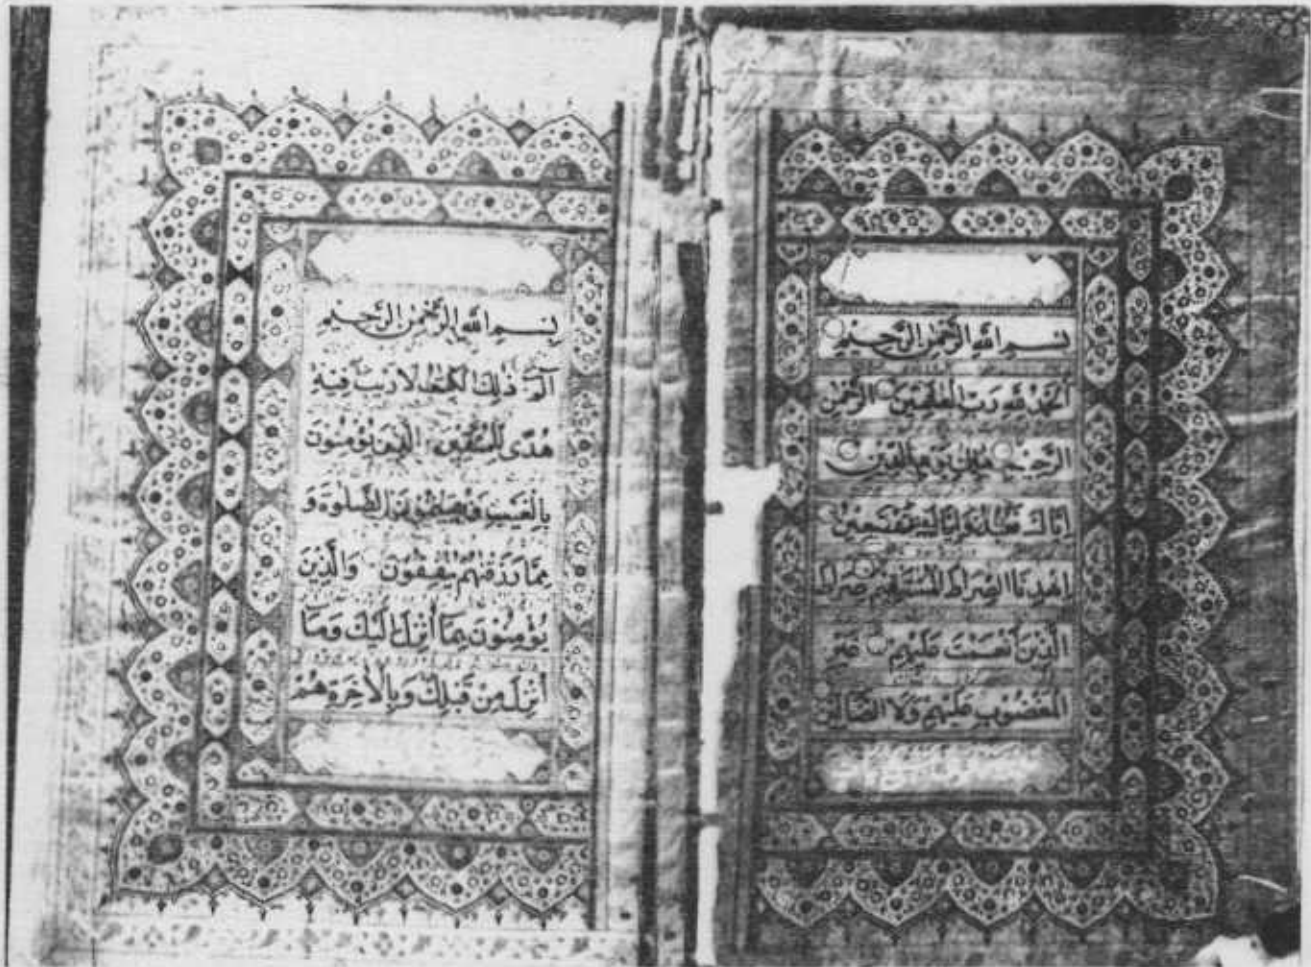 بِسْمِ اللَّهِ الرَّحْمَٰنِ الرَّحِيمِ
اَلْحَمْدُ لِلَّهِ رَبِّ الْعٰلَمِينَ الرَّحْمٰنِ
الرَّحِيمِ مٰلِكِ يَوْمِ الدِّينِ
اِيَّاكَ نَعْبُدُ وَاِيَّاكَ نَسْتَعِينُ
اِهْدِنَا الصِّرَاطَ الْمُسْتَقِيمَ صِرَاطَ
الَّذِينَ اَنْعَمْتَ عَلَيْهِمْ غَيْرِ
الْمَغْضُوبِ عَلَيْهِمْ وَلَا الضَّالِّينَ
بِسْمِ اللَّهِ الرَّحْمٰنِ الرَّحِيمِ
الٓمٓ ذٰلِكَ الْكِتٰبُ لَا رَيْبَ فِيهِ
هُدًى لِلْمُتَّقِينَ الَّذِينَ يُؤْمِنُونَ
بِالْغَيْبِ وَيُقِيمُونَ الصَّلٰوةَ وَ
مِمَّا رَزَقْنٰهُمْ يُنْفِقُونَ وَالَّذِينَ
يُؤْمِنُونَ بِمَا اُنْزِلَ اِلَيْكَ وَمَا
اُنْزِلَ مِنْ قَبْلِكَ وَبِالْاٰخِرَةِ هُمْ